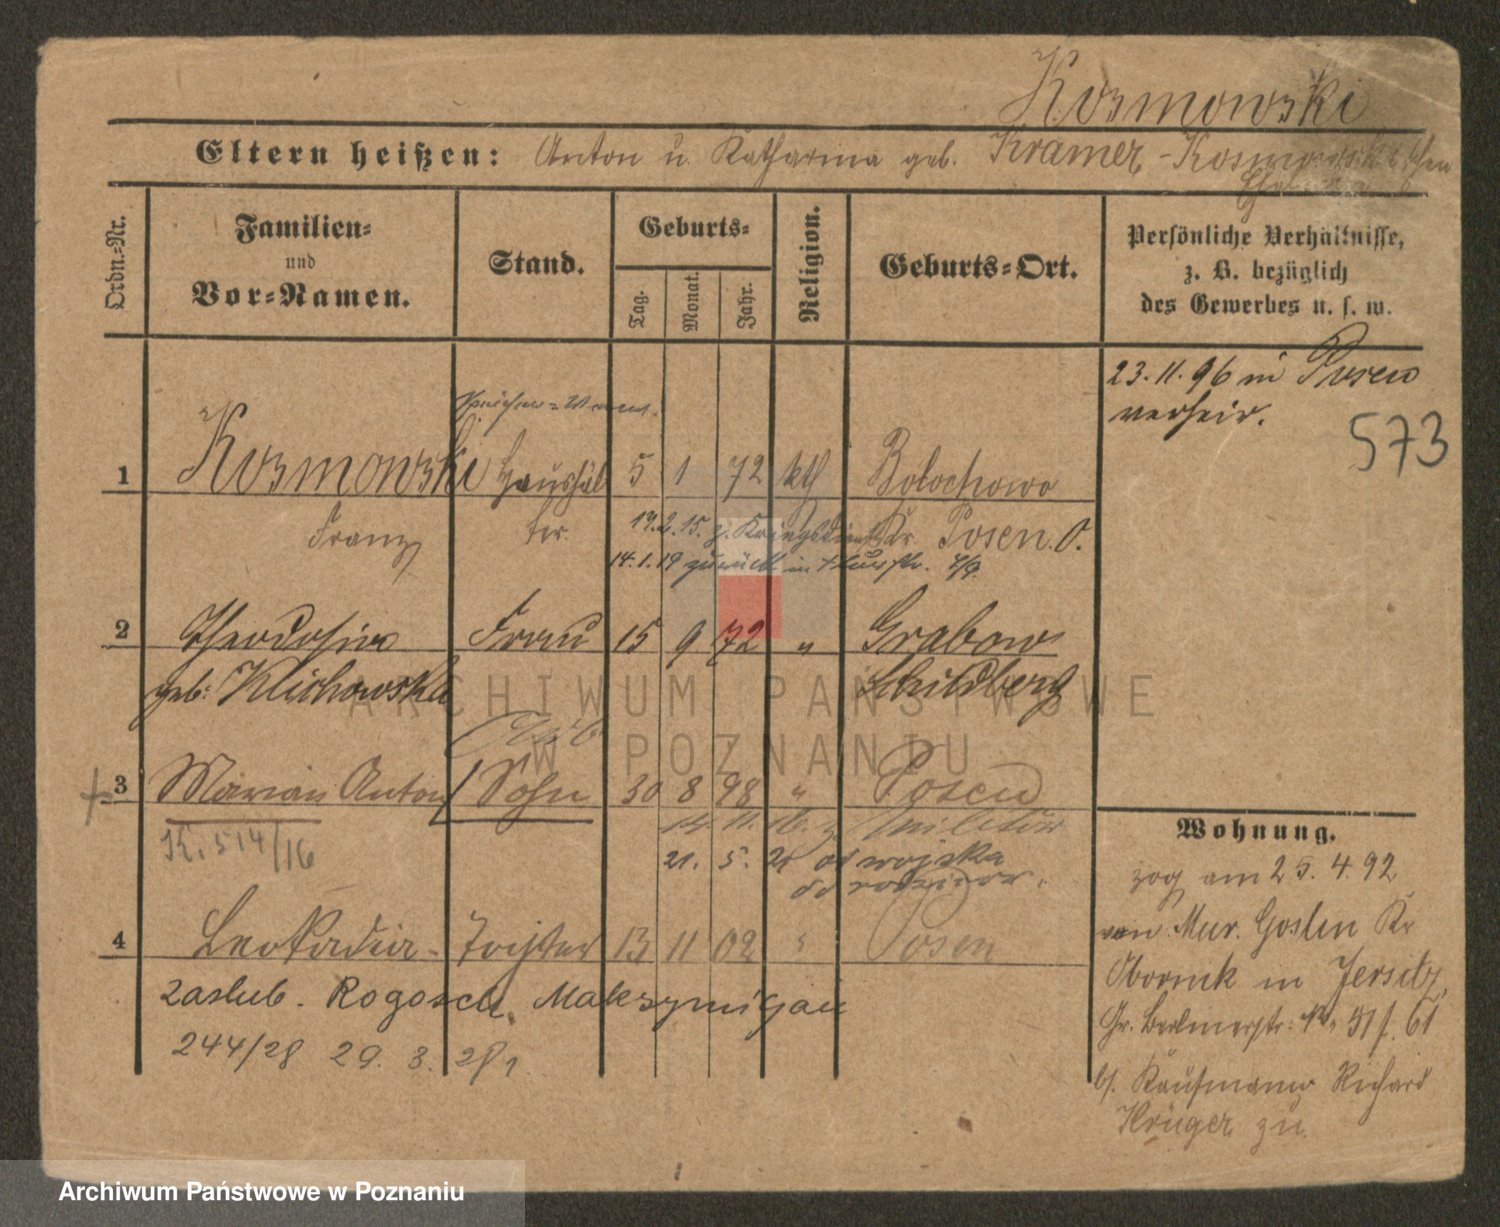 Kosmowski
Eltern heißen: Anton u. Katharina geb. Kramer - Kosmowski'schen
Ordn.-Nr.
Familien-
und
Vor-Namen.
Stand.
Geburts-
Tag.
Monat.
Jahr.
Religion.
Geburts-Ort.
Persönliche Verhältnisse,
z. B. bezüglich
des Gewerbes u. s. w.
23.11.96 in Posen
verheir.
573
1 Kosmowski Haushäl 5 1 72 kth Bolochowo
Franz ter. 19.2.15. z. Kriegsdienst Kr. Posen. O.
14.1.19 zurück in
2 Theodosia Frau 15 9 72 " Grabow
geb: Klichowska Schildberg
3 Marian Anton Sohn 30 8 98 " Posen
K. 514/16 14. 11. 16. z. Militär
21. 5. 21 od wojska
do
4 Leokadia - Tochter 13 11 02 " Posen
zaslub. Rogosch Maksymiljan
244/28 29. 3. 28
Wohnung.
zog am 25. 4. 92
von Mur. Goslin Kr
Obornik in Jersitz,
Gr. Berlinerstr: No. 51 f. 61
bf. Kaufmann Richard
Krüger zu.
ARCHIWUM PAŃSTWOWE
W POZNANIU
Archiwum Państwowe w Poznaniu